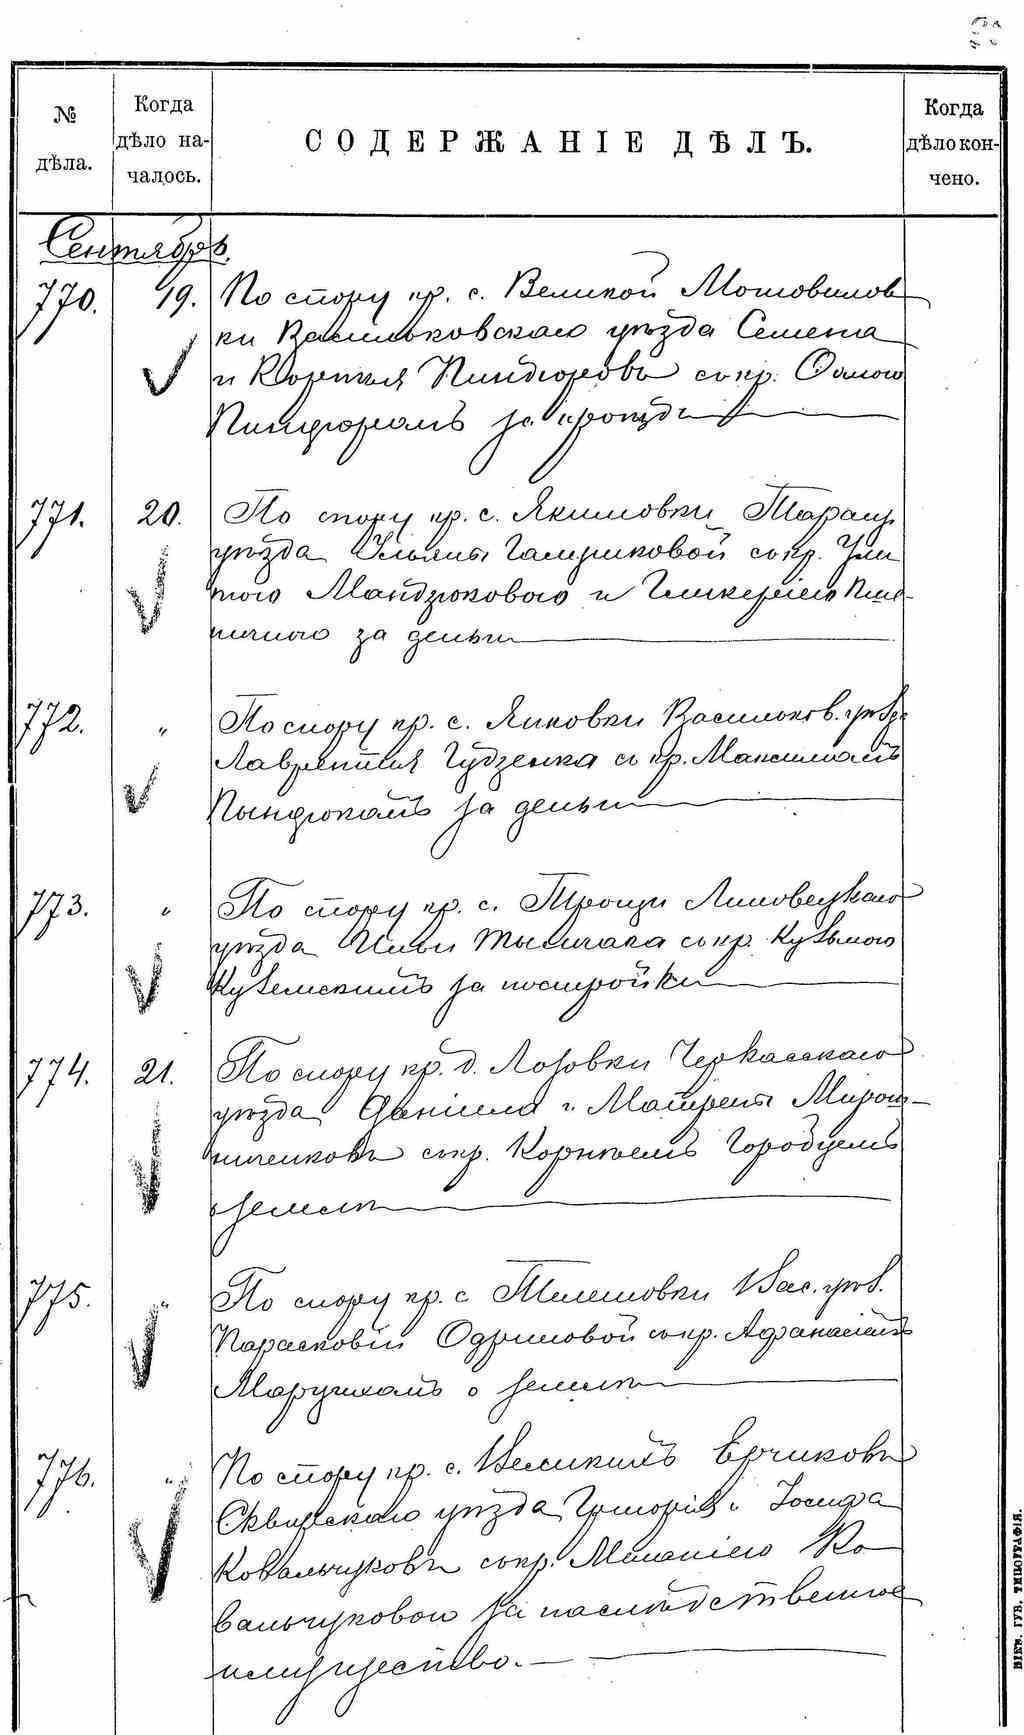 № дѣла.
Когда дѣло началось.
СОДЕРЖАНІЕ ДѢЛЪ.
Когда дѣло кончено.
Сентябрь.
770. 19. По спору кр. с. Великой Мотовилов
ки Васильковскаго уѣзда Семена
и Корнилія съ кр. Ѳомою
за
771. 20. По спору кр. с. Якимовки Таращ.
уѣзда Ульяны съ кр. Ули
тою Мандзюковою и Гликеріею Пше-
ничною за деньги
772. " По спору кр. с. Яцковки Васильков. уѣз.
Лаврентія Гудзенка съ кр. Максимомъ
Пындюкомъ за деньги
773. " По спору кр. с. Трощи Липовецкаго
уѣзда Ильи съ кр. Кузьмою
за постройки
774. 21. По спору кр. д. Лозовки Черкасскаго
уѣзда Даніила и Матрены Мирош-
ниченковъ съ кр. Корнѣемъ Городцемъ
о землѣ
775. " По спору кр. с. Вас. уѣз.
Парасковіи съ кр. Афанасіемъ
о землѣ
776. " По спору кр. с. Великихъ Ерчиковъ
Сквирскаго уѣзда Григорія и Іосифа
Ковальчуковъ съ кр. Меланіею Ко
вальчуковою за наслѣдственное
имущество.
КІЕВ. ГУБ. ТИПОГРАФІЯ.